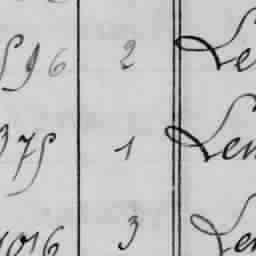 596 2 Le
375 1 Len
1016 3 Len